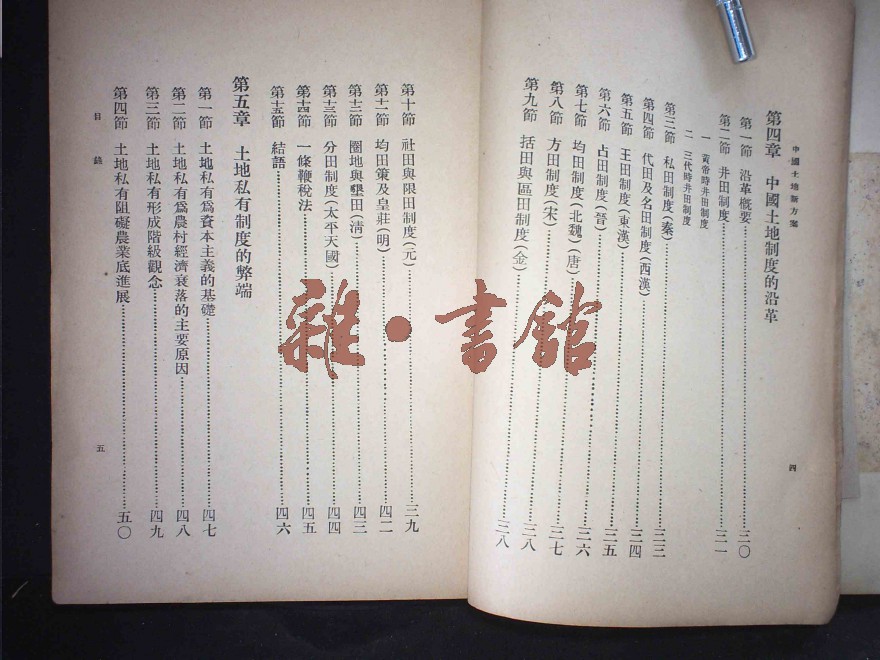 中國土地新方案
第四章　中國土地制度的沿革
第一節　沿革概要……三〇
第二節　井田制度……三一
一　黃帝時井田制度
二　三代時井田制度
第三節　私田制度(秦)……三三
第四節　代田及名田制度(西漢)……三四
第五節　王田制度(東漢)……三五
第六節　占田制度(晉)……三五
第七節　均田制度(北魏)(唐)……三六
第八節　方田制度(宋)……三七
第九節　括田與區田制度(金)……三八
四
第十節　社田與限田制度(元)……三九
第十一節　均田策及皇莊(明)……四二
第十二節　圈地與墾田(清)……四三
第十三節　分田制度(太平天國)……四四
第十四節　一條鞭稅法……四五
第十五節　結語……四六
第五章　土地私有制度的弊端
第一節　土地私有爲資本主義的基礎……四七
第二節　土地私有爲農村經濟衰落的主要原因……四八
第三節　土地私有形成階級觀念……四九
第四節　土地私有阻礙農業底進展……五〇
目錄
五
雜·書館